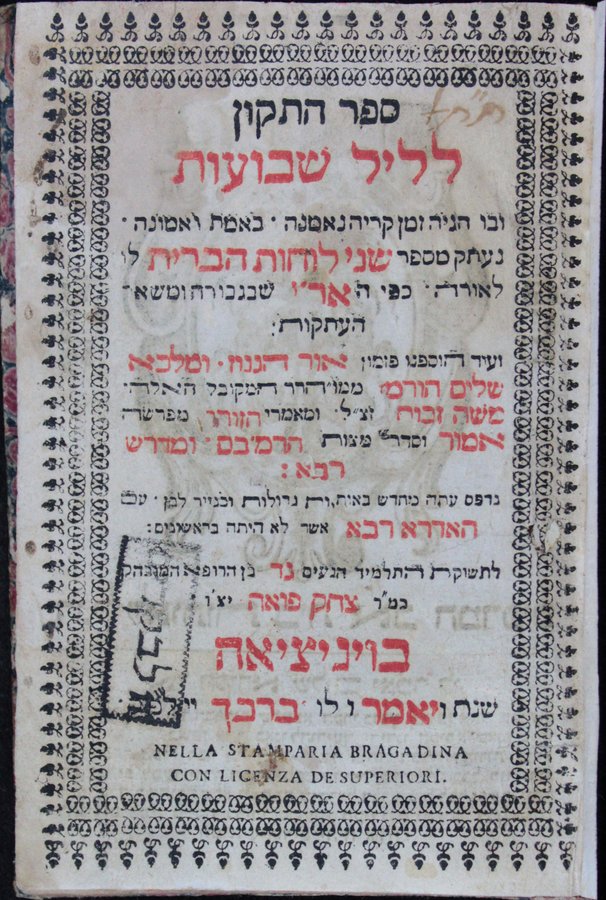 ספר התקון
לליל שבועות
ובו הגיה זמן קריה נאמנה · באמת ואמונה ·
נעתק מספר שני לוחות הברית לו
לאורה · כפי ה אר״י שבגבורה ומשא
העתקות :
ועוד הוספנו פזמון אור הגנוז · ומלכא
שלים הורמי ממו׳הרר המקובל האלה׳
משה זכות זצ״ל · ומאמרי הזוהר מפרשה
אמור וסדר מצות הרמב׳ם · ומדרש
רבא :
נדפס עתה מחדש באותיות גדולות ובנייר לבן · עם
האדרא רבא אשר לא היתה בראשונים :
לתשוקת התלמיד הנעים גד בן הרופא המובהק
כמ״ר יצחק פואה יצ״ו
בויניציאה
שנת ויאמר לו ברכך
NELLA STAMPARIA BRAGADINA
CON LICENZA DE SUPERIORI.